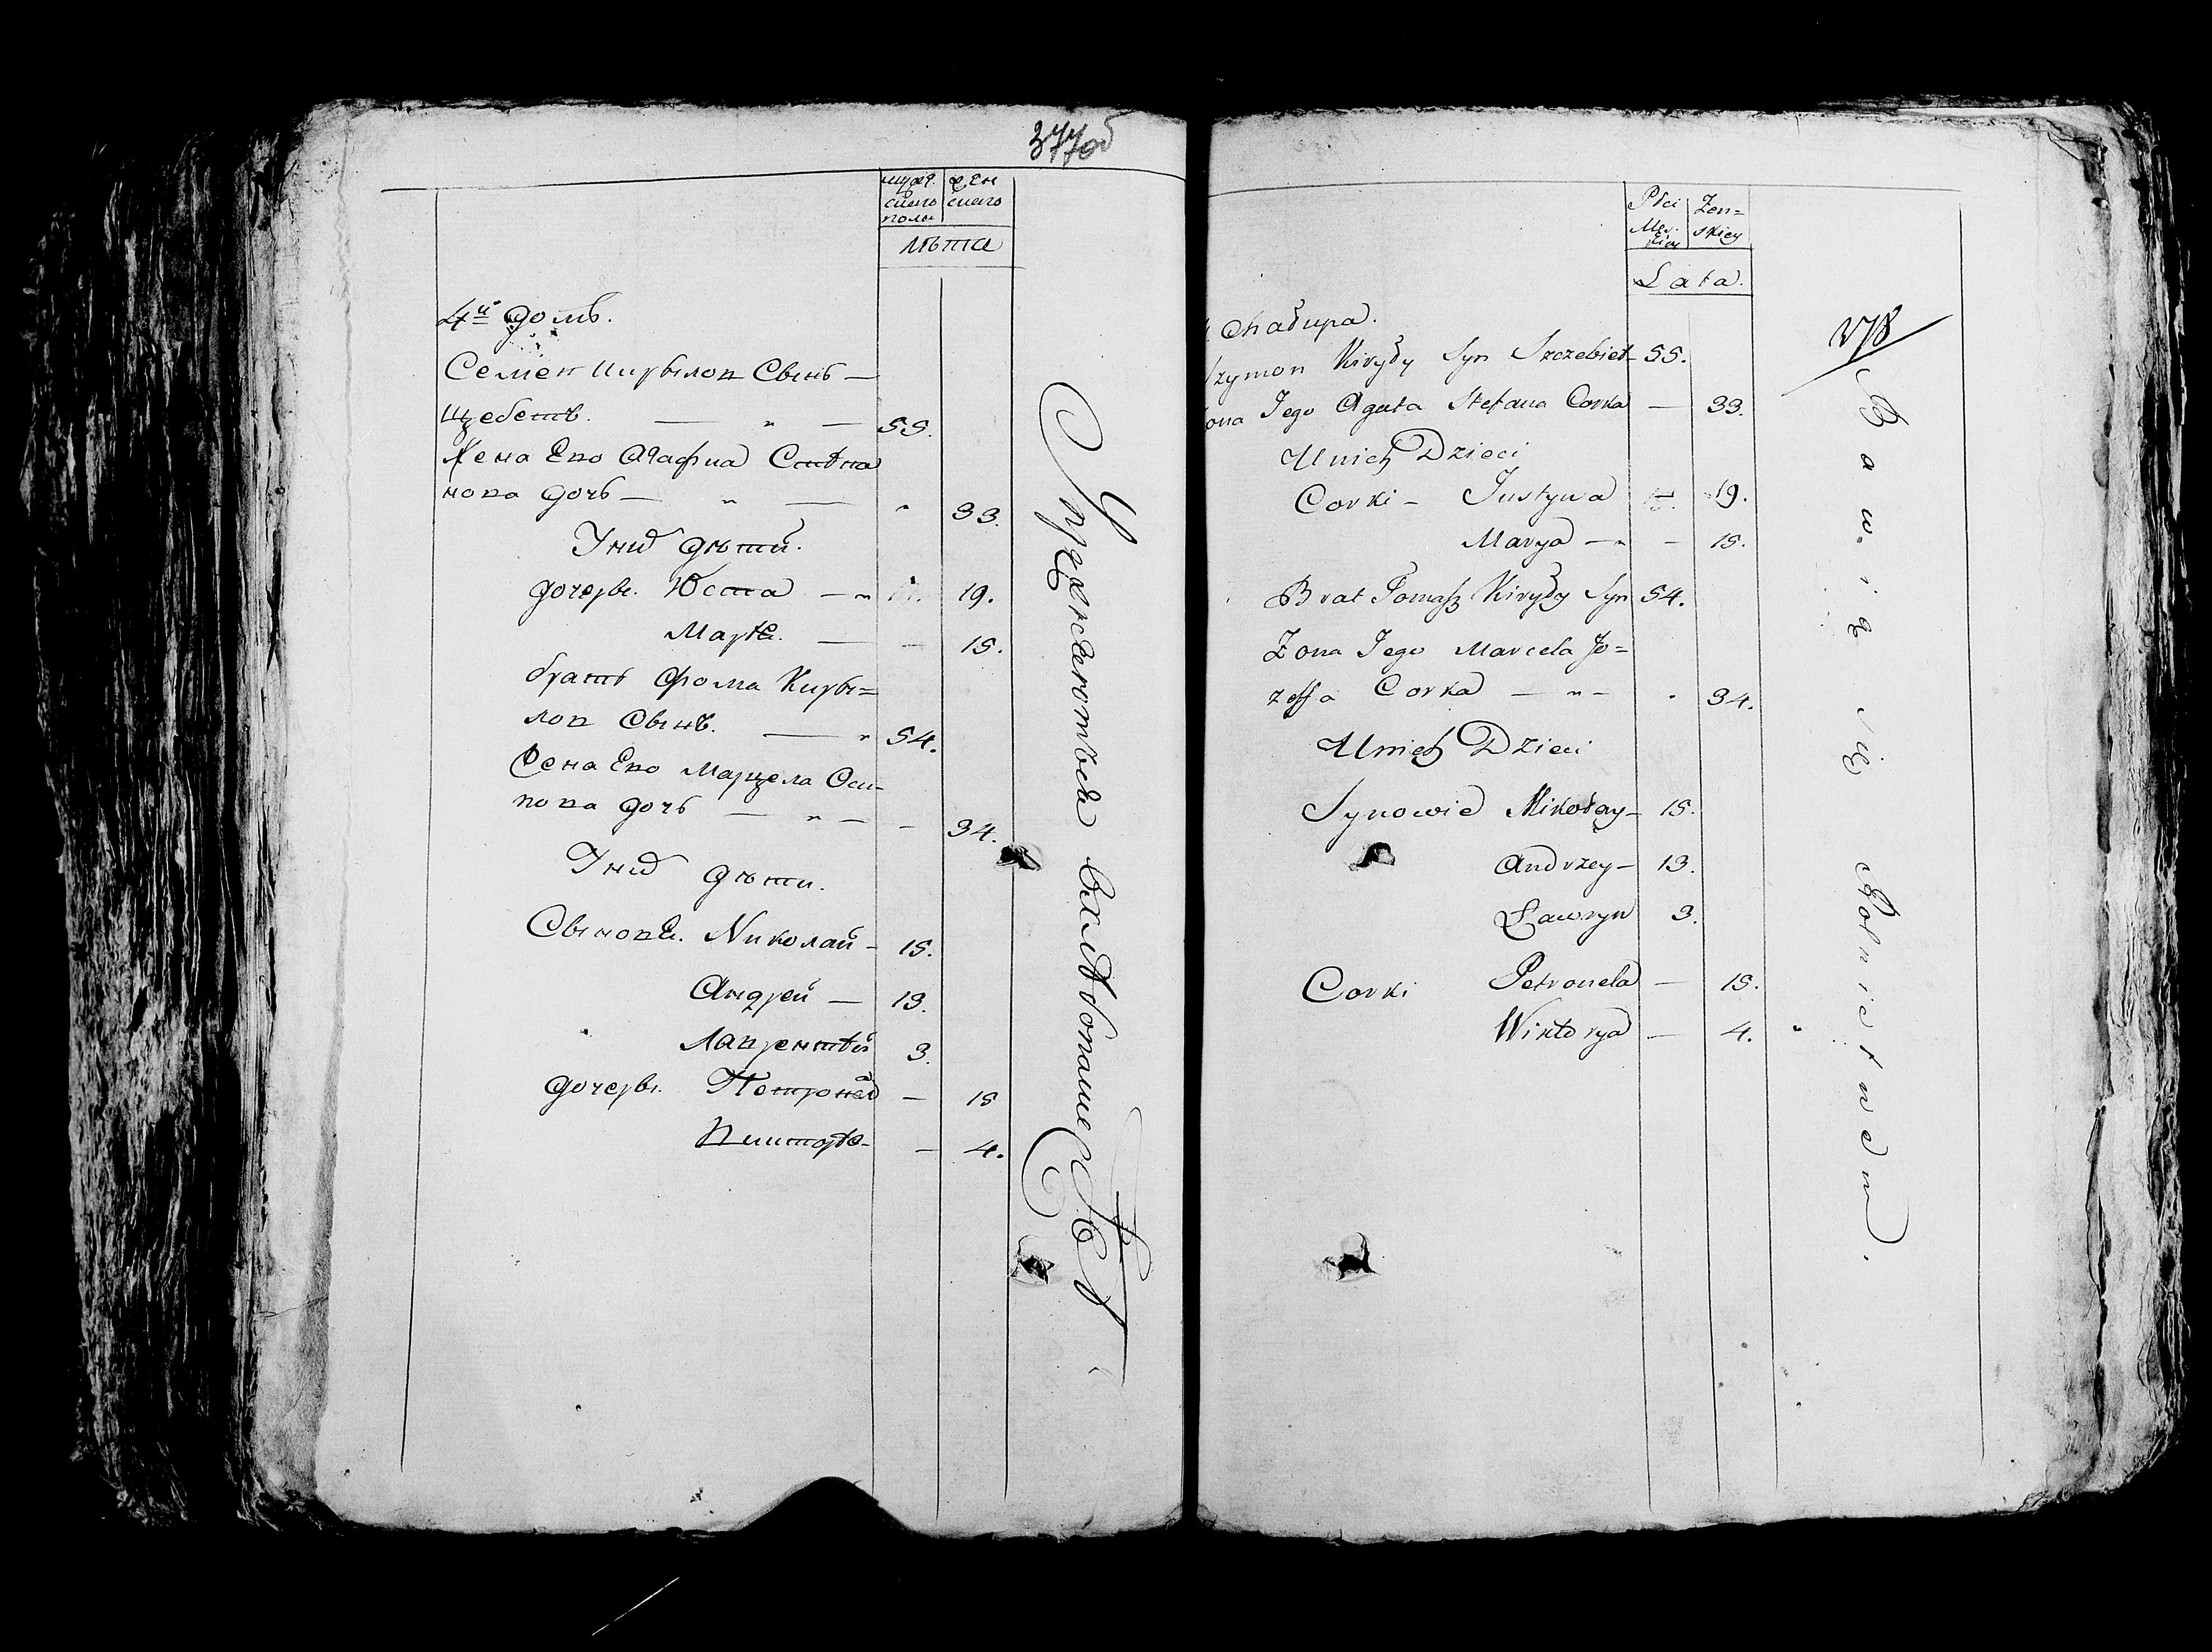 377об
мужескаго пола
женскаго
лѣта
4й домъ.
Семен Кирылов Сынъ —
Щебетъ. — " — 55.
Жена Его Агафиа Степа
нова дочь — " — " 33.
У них дѣти.
дочеры. Юста — " 19.
Марья. — — 15.
братъ Фома Киры=
лов Сынъ. — " 54.
Жена Его Марцела Оси-
пова дочь — " — — 34.
У них дѣти.
Сыновья. Николай — 15.
Андрей — 13.
Лаврентѣй 3.
дочеры. Петронеля — 15
Викторья — 4.
Упражняютъся в хлѣбопаше
Płci Męskiey
Żenskiey
Lata.
Chałupa.
Szymon Kiryły Syn Szczebiet — 55.
ona Jego Agata Stefana Corka — 33.
U nich Dzieci
Corki — Justyna 19.
Marya — " — 15.
Brat Tomasz Kiryły Syn 54.
Zona Jego Marcela Jo=
zefa Corka — " — " 34.
U nich Dzieci
Synowie Mikołay — 15.
Andrzey — 13.
Ławryn 3.
Corki Petronela — 15.
Wiktorya — 4.
Bawią się Rolnictwem.